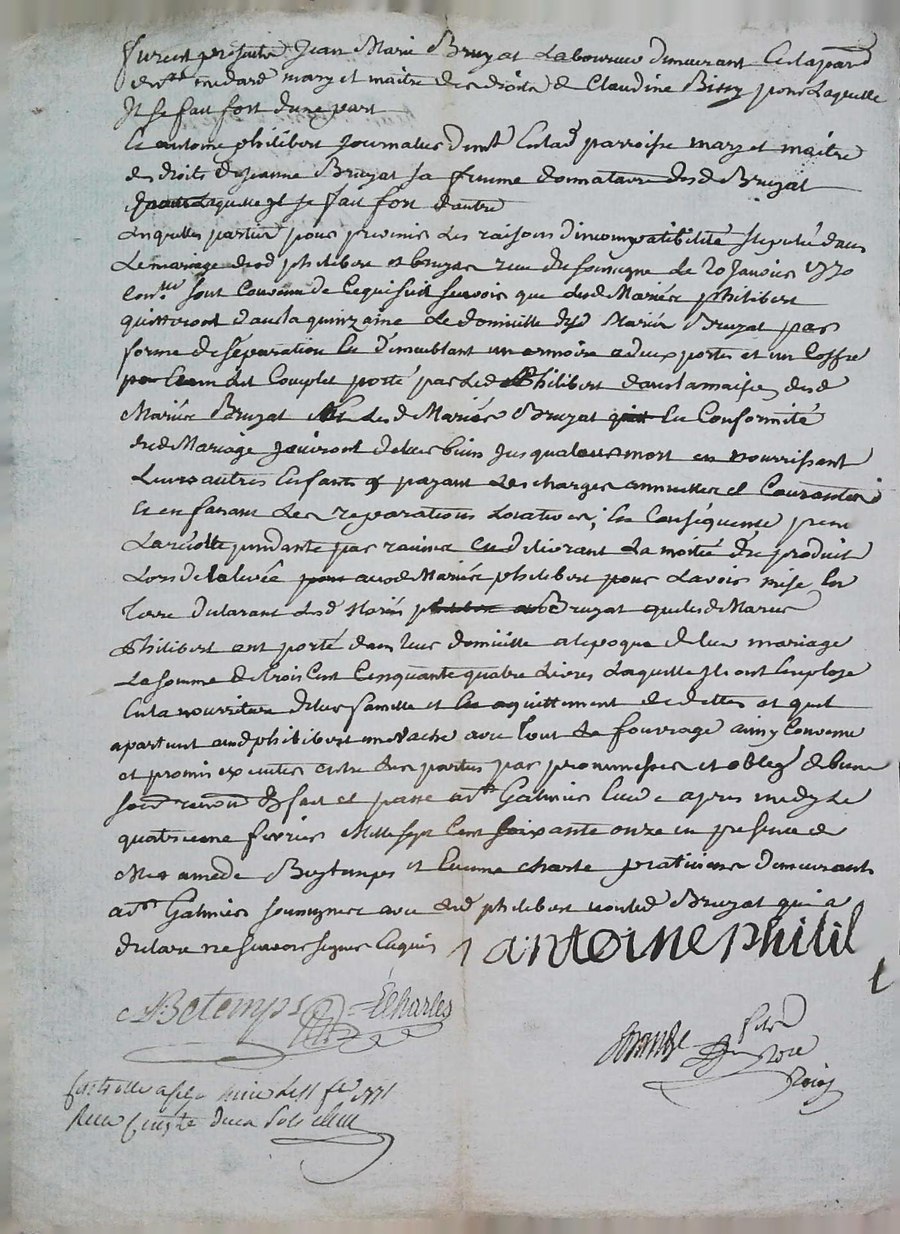 furent presents Jean Marie Bruyat Laboureur demeurant en la paroisse
de St medard mary et maitre des droits de Claudine Bissy pour Laquelle
Il se fait fort d'une part
Et antoine philibert Journalier demt en lad parroisse mary et maitre
des droits de jeanne Bruyat sa femme donnataire desd Bruyat
Laquelle Il se fait fort d'autre
Lesquelles parties pour prevenir Les raisons d'incompatibilité stipulé dans
Le mariage desd philibert et bruyat reçu du soussigné Le 20 Janvier 1770
sont Convenu de Ce qui suit sçavoir que Lesd Mariés philibert
quitteront dans la quinzaine Le domicille desd Mariés Bruyat par
forme de séparation En d'emeublant un armoire a deux portes et un Coffre
un Lit Complet porté par Led Philibert dans la maison desd
Mariés Bruyat Et Lesd Mariés Bruyat En Conformité
dud Mariage jouiront de leur bien jusqu'a leur mort en nourrissant
Leurs autres Enfants & payant Les charges annuelles et Courantes
Et en faisant Les reparations Locatives; En Conséquence
La récolte pendante par racine En délivrant La moitié du produit
Lors de la levée auxd Mariés philibert pour L'avoir mise En
Terre declarant Lesd Mariés Bruyat que Lesd Mariés
Philibert ont porté dans leur domicille a l'epoque de leur mariage
La somme de trois Cent Cinquante quatre Livres Laquelle Ils ont Employé
En la nourriture de leur famille et En aquittement de dettes et quil
apartient aud philibert une vache avec tout Le fourrage ainsy Convenu
et promis executer entre Les parties par promesses et obligé de biens
soumon renon & fait et passé a St Galmier Etude apres midy Le
quatrieme fevrier Mille sept Cent soixante onze en presence de
Me amedé Bétemps et Etienne charle praticiens demeurants
a St Galmier soussignés avec Led philibert non Led Bruyat qui a
declare ne sçavoir signer Enquis antoine philil
Betemps ECharles
Note Roial
Controllé a St Galmier Le 11 fev 1771
Reçu